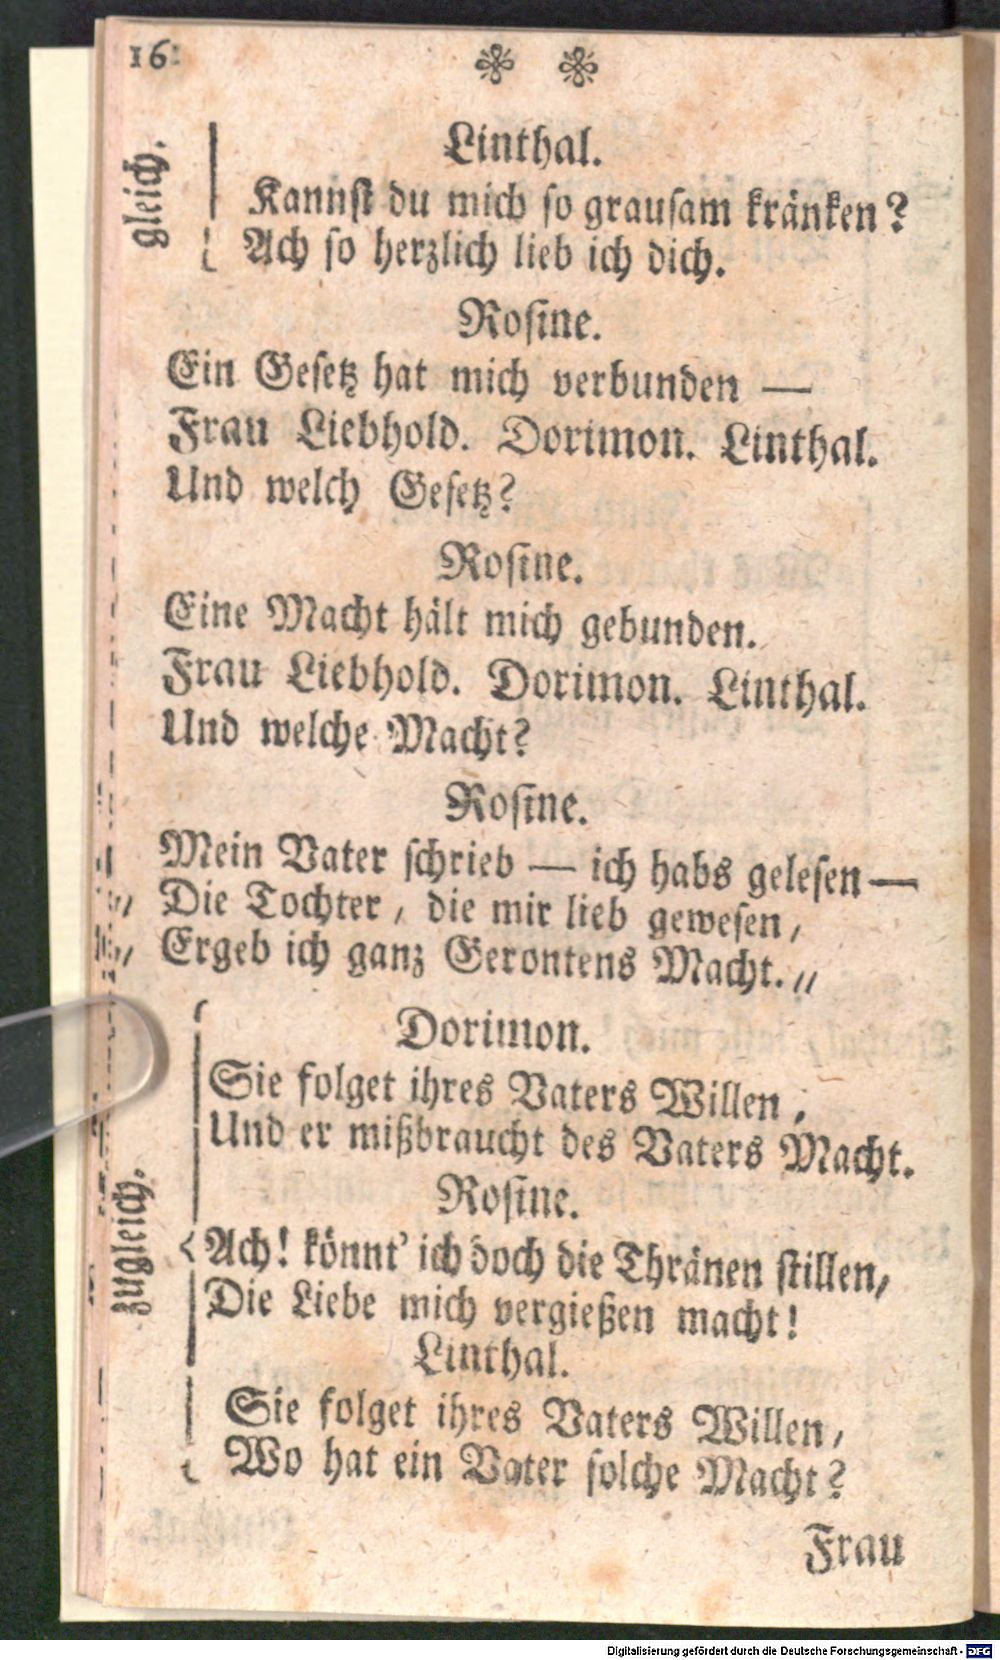 16
gleich.
Linthal.
Kannst du mich so grausam kränken?
Ach so herzlich lieb ich dich.
Rosine.
Ein Gesetz hat mich verbunden —
Frau Liebhold. Dorimon. Linthal.
Und welch Gesetz?
Rosine.
Eine Macht hält mich gebunden.
Frau Liebhold. Dorimon. Linthal.
Und welche Macht?
Rosine.
Mein Vater schrieb — ich habs gelesen —
„ Die Tochter, die mir lieb gewesen,
„ Ergeb ich ganz Gerontens Macht. „
zugleich.
Dorimon.
Sie folget ihres Vaters Willen,
Und er mißbraucht des Vaters Macht.
Rosine.
Ach! könnt' ich doch die Thränen stillen,
Die Liebe mich vergießen macht!
Linthal.
Sie folget ihres Vaters Willen,
Wo hat ein Vater solche Macht?
Frau
Digitalisierung gefördert durch die Deutsche Forschungsgemeinschaft - DFG